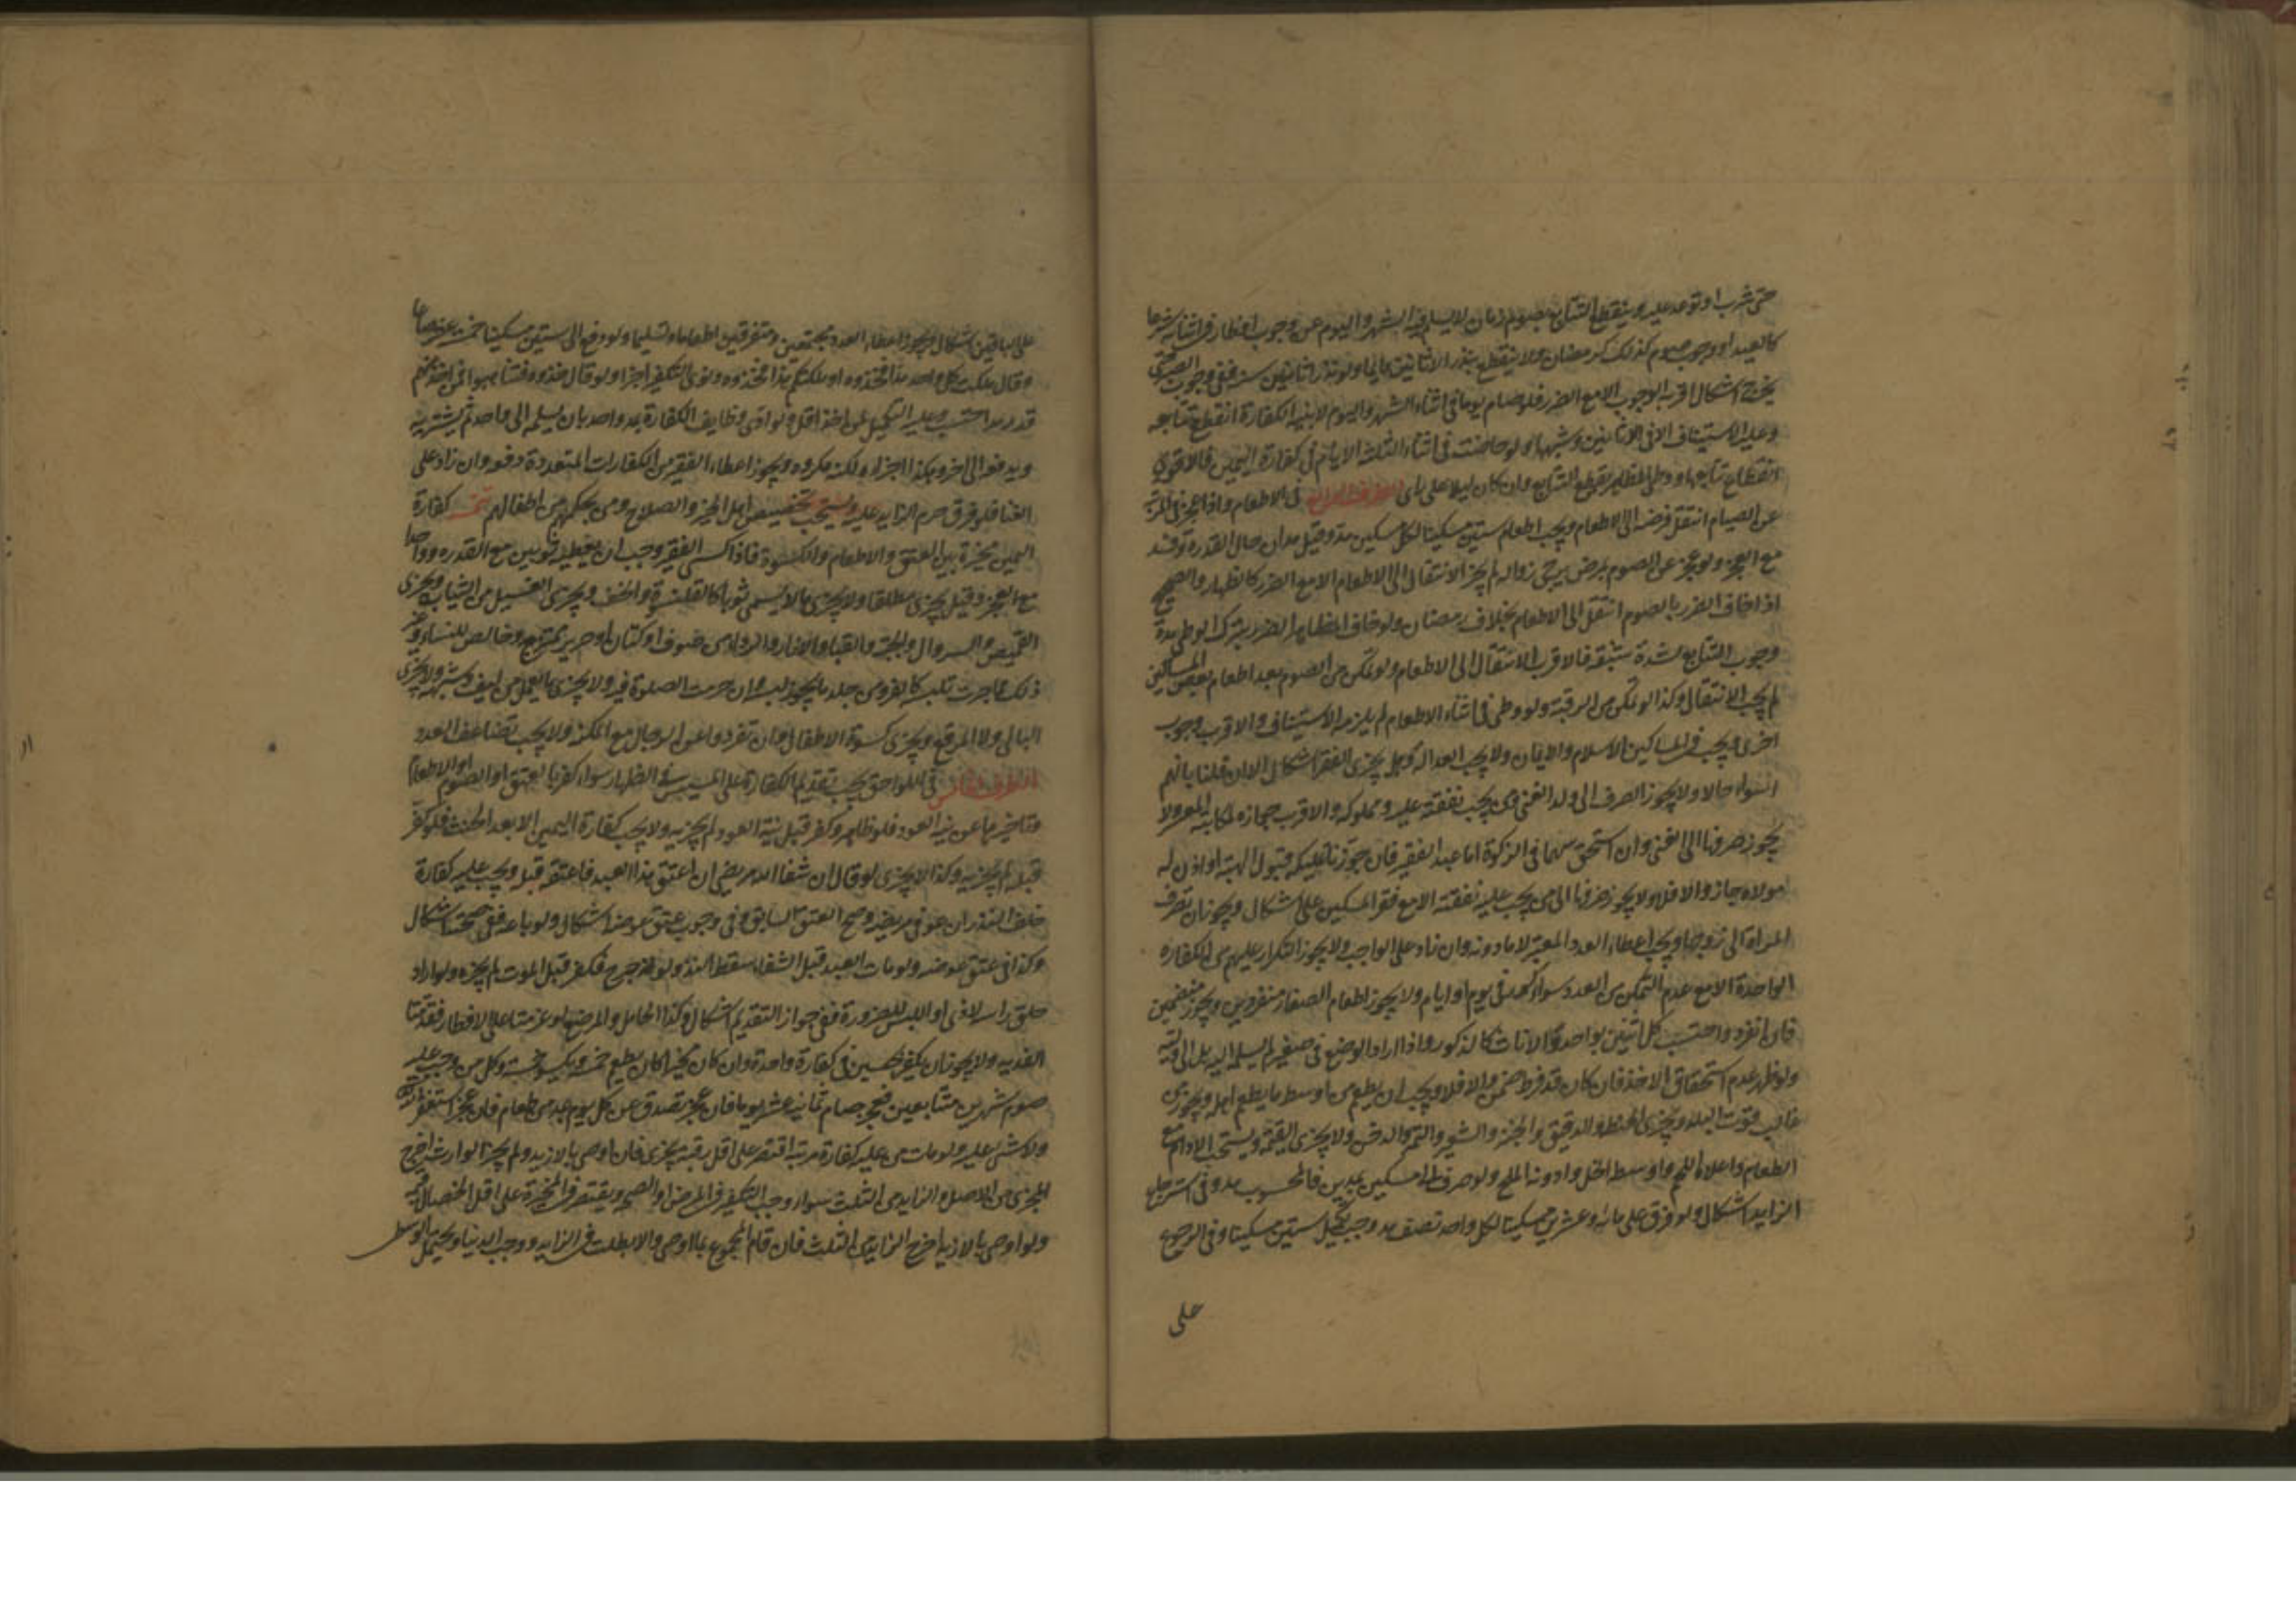 حتى شرب او توعد عليه وينقطع التتابع بصوم زمان لا يسلم فيه الشهر واليوم عن وجوب افطار في اثنائه شرعا
كالعيد او وجوب صوم كذلك كرمضان ولا ينقطع بنذر الاثانين دايما ولو نذر اثانين سنة ففي وجوب الصبر حتى
يخرج اشكال اقربه الوجوب الا مع الضرر فلو صام يوما في اثناء الشهر واليوم لا بنية الكفارة انقطع تتابعه
وعليه الاستيناف الا في الاثانين وشبهها ولو حاضت في اثناء الثلثة الايام في كفارة اليمين فالاقوى
انقطاع تتابعها ووطى المظاهر يقطع التتابع وان كان ليلا على راى الطرف الرابع في الاطعام واذا عجز في المرتبة
عن الصيام انتقل فرضه الى الاطعام ويجب اطعام ستين مسكينا لكل مسكين مد وقيل مدان حال القدرة ومد
مع العجز ولو عجز عن الصوم بمرض يرجى زواله لم يجز الانتقال الى الاطعام الا مع الضرر كالظهار والصحيح
اذا خاف الضرر بالصوم انتقل الى الاطعام بخلاف رمضان ولو خاف المظاهر الضرر بترك الوطى مدة
وجوب التتابع لشدة شبقه فالاقرب الانتقال الى الاطعام ولو تمكن من الصوم بعد اطعام بعض المساكين
لم يجب الانتقال وكذا لو تمكن من الرقبة ولو وطى في اثناء الاطعام لم يلزمه الاستيناف والاقرب وجوب
اخرى ويجب في المساكين الاسلام والايمان ولا يجب العدالة وهل يجزى الفقراء اشكال الا ان قلنا بانهم
اسوا حالا ولا يجوز الصرف الى ولد الغنى ومن يجب نفقته عليه ومملوكه والاقرب جوازه لمكاتبه المعسر ولا
يجوز صرفها الى الغنى وان استحق سهما في الزكوة اما عبد الفقير فان جوزنا تمليكه قبول الهبة او اذن له
مولاه جاز والا فلا ولا يجوز صرفها الى من يجب عليه نفقته الا مع فقر المسكين على اشكال ويجوز ان تصرف
المراة الى زوجها ويجب اعطاء العدد المعتبر لا ما دونه وان زاد على الواجب ولا يجوز التكرار عليهم من الكفارة
الواحدة الا مع عدم التمكن من العدد سواء كرر في يوم او ايام ولا يجوز اطعام الصغار منفردين ويجوز منضمين
فان انفردوا احتسب كل اثنين بواحد والاناث كالذكور واذا اراد الوضع في صغير لم يسلمه اليه بل الى وليه
ولو ظهر عدم استحقاق الاخذ فان كان قد فرط ضمن والا فلا ويجب ان يطعم من اوسط ما يطعم اهله ويجوز من
غالب قوت البلد ويجزى الحنطة والدقيق والخبز والشعير والتمر والدخن ولا يجزى القيمة ويستحب الادام مع
الطعام واعلاه اللحم واوسطه الخل وادونه الملح ولو صرف الى مسكين مدين فالمحسوب مد وفي استرجاع
الزايد اشكال ولو فرق على ماية وعشرين مسكينا لكل واحد نصف مد وجب تكميل ستين مسكينا وفي الرجوع
على
على الباقين اشكال ويجوز اعطاء العدد مجتمعين ومتفرقين اطعاما وتسليما ولو دفع الى ستين مسكينا خمسة عشر صاعا
وقال ملكت كل واحد مدا فخذوه او ملكتكم هذا فخذوه ونوى التكفير اجزا ولو قال خذوه فتناهبوا فمن اخذ منهم
قدر مد احتسب وعليه التكميل لمن اخذ اقل ولو ادى وظايف الكفارة بمد واحد بان يسلمه الى واحد ثم يشتريه
ويدفعه الى اخر وهكذا اجزاه ولكنه مكروه ويجوز اعطاء الفقير من الكفارات المتعددة دفعة وان زاد على
الغنا فلو فرق حرم الزايد عليه ويستحب تخصيص اهل الخير والصلاح ومن بحكمهم من اطفالهم تتمة كفارة
اليمين مخيرة بين العتق والاطعام والكسوة فاذا كسى الفقير وجب ان يعطيه ثوبين مع القدرة وواحدا
مع العجز وقيل يجزى مطلقا ولا يجزى ما لا يسمى ثوبا كالقلنسوة والخف ويجزى الغسيل من الثياب ويجزى
القميص والسروال والجبة والقباء والازار والرداء من صوف او كتان او حرير ممتزج وخالص للنساء وغير
ذلك مما جرت تلبسه كالفرو من جلد ما يجوز لبسه وان حرمت الصلوة فيه ولا يجزى ما يعمل من ليف وشبهه ولا يجزى
البالى ولا المرقع ويجزى كسوة الاطفال وان تفردوا عن الرجال مع المكنة ولا يجب تضاعف العدد
الطرف الخامس في اللواحق يجب تقديم الكفارة على المسيس في الظهار سواء كفر بالعتق او الصوم او الاطعام
وتاخيرها عن نية العود فلو ظاهر وكفر قبل نية العود لم يجزيه ولا يجب كفارة اليمين الا بعد الحنث فلو كفر
قبله لم يجزيه وكذا لا يجزى لو قال ان شفا الله مريضى ان اعتق هذا العبد فاعتقه قبل ويجب عليه كفارة
خلف النذر ان عوفى مريضه وصح العتق السابق وفي وجوب عتق عوضه اشكال ولو باعه ففي صحته اشكال
وكذا في عتق عوضه ولو مات العبد قبل الشفاء سقط النذر ولو جرح فكفر قبل الموت لم يجزه ولو اراد
حلق راسه لاذى او اللبس للضرورة ففي جواز التقديم اشكال وكذا الحامل والمرضع لو عزمتا على الافطار فقدمتا
الفدية ولا يجوز ان يكفر بجنسين في كفارة واحدة وان كان مخيرا كان يطعم خمسة ويكسو خمسة وكل من وجب عليه
صوم شهرين متتابعين فعجز صام ثمانية عشر يوما فان عجز تصدق عن كل يوم بمد من طعام فان عجز استغفر الله
ولا شئ عليه ولو مات من عليه كفارة مرتبة اقتصر على اقل رقبة يجزى فان اوصى بالازيد ولم يجز الوارث اخرج
المجزى من الاصل والزايد من الثلث سواء وجب التكفير في المرض او الصحة ويقتصر في المخيرة على اقل الخصال قيمة
ولو اوصى بالازيد اخرج الزايد من الثلث فان قام المجموع بما اوصى والا بطلت في الزايد ووجب الدنيا ويحتمل الوسطى